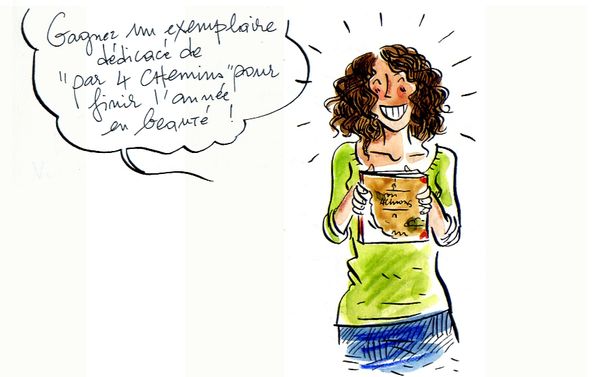 Gagnez un exemplaire
dédicacé de
"par 4 CHemins" pour
finir l'année
en beauté !